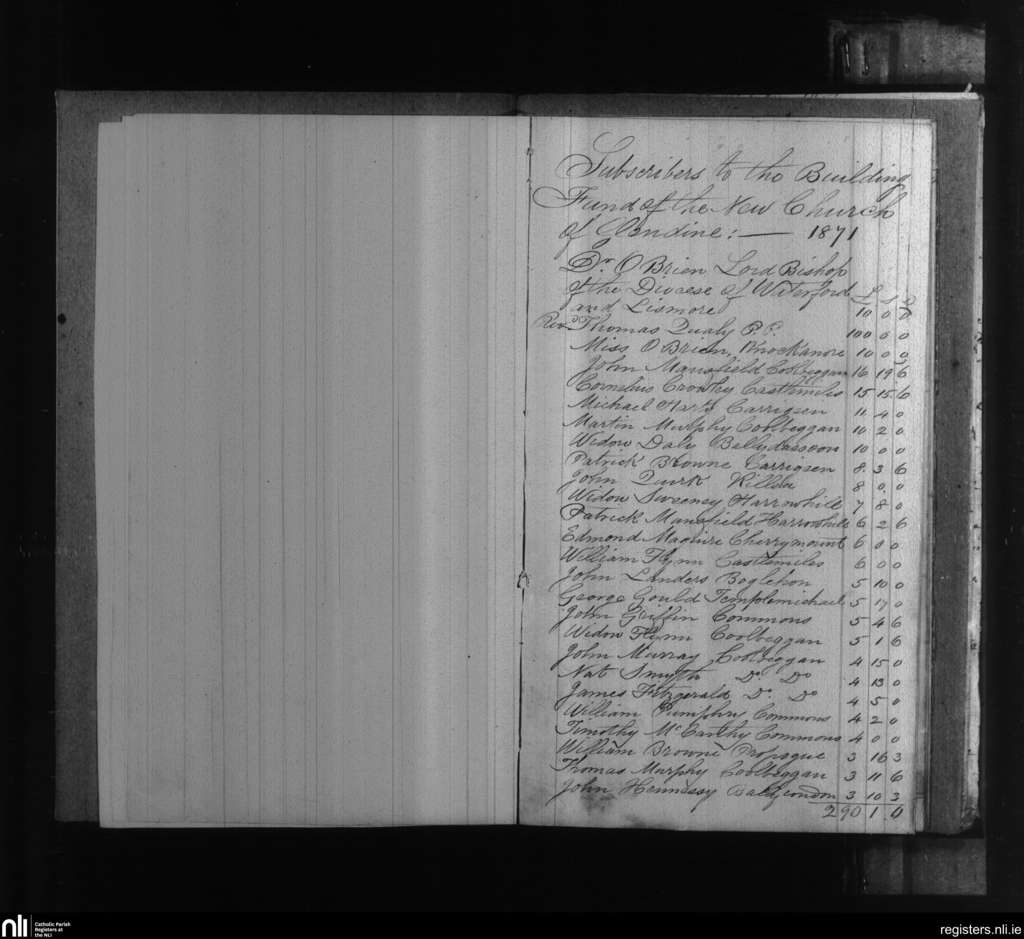 Subscribers to the Building
Fund of the New Church
of Clondine: — 1871
Dr. O Brien Lord Bishop
of the Diocese of Waterford £ s d
and Lismore 10 0 0
Revd Thomas Qualy P.P. 100 0 0
Miss O Brien, Knockanore 10 0 0
John Mansfield Coolbeggan 16 19 6
Cornelius Crowley Castlemiles 15 15 6
Michael Harty Carrigeen 11 4 0
Martin Murphy Coolbeggan 10 2 0
Widow Daly Ballydassoon 10 0 0
Patrick Browne Carrigeen 8 3 6
John Quirk 8 0 0
Widow Sweeney Harrowhill 7 8 0
Patrick Mansfield Harrowhill 6 2 6
Edmond Maguire Cherrymount 6 0 0
William Flynn Castlemiles 6 0 0
John Landers Boglehon 5 10 0
George Gould Templemichael 5 17 0
John Griffin Commons 5 4 6
Widow Flynn Coolbeggan 5 1 6
John Murray Coolbeggan 4 15 0
Nat Smyth Do Do 4 13 0
James Fitzgerald Do Do 4 5 0
William Pumphry Commons 4 2 0
Timothy McCarthy Commons 4 0 0
William Browne Propogue 3 16 3
Thomas Murphy Coolbeggan 3 11 6
John Hennessy Ballycondon 3 10 3
290 1 0
nli Catholic Parish
Registers at
the NLI
registers.nli.ie